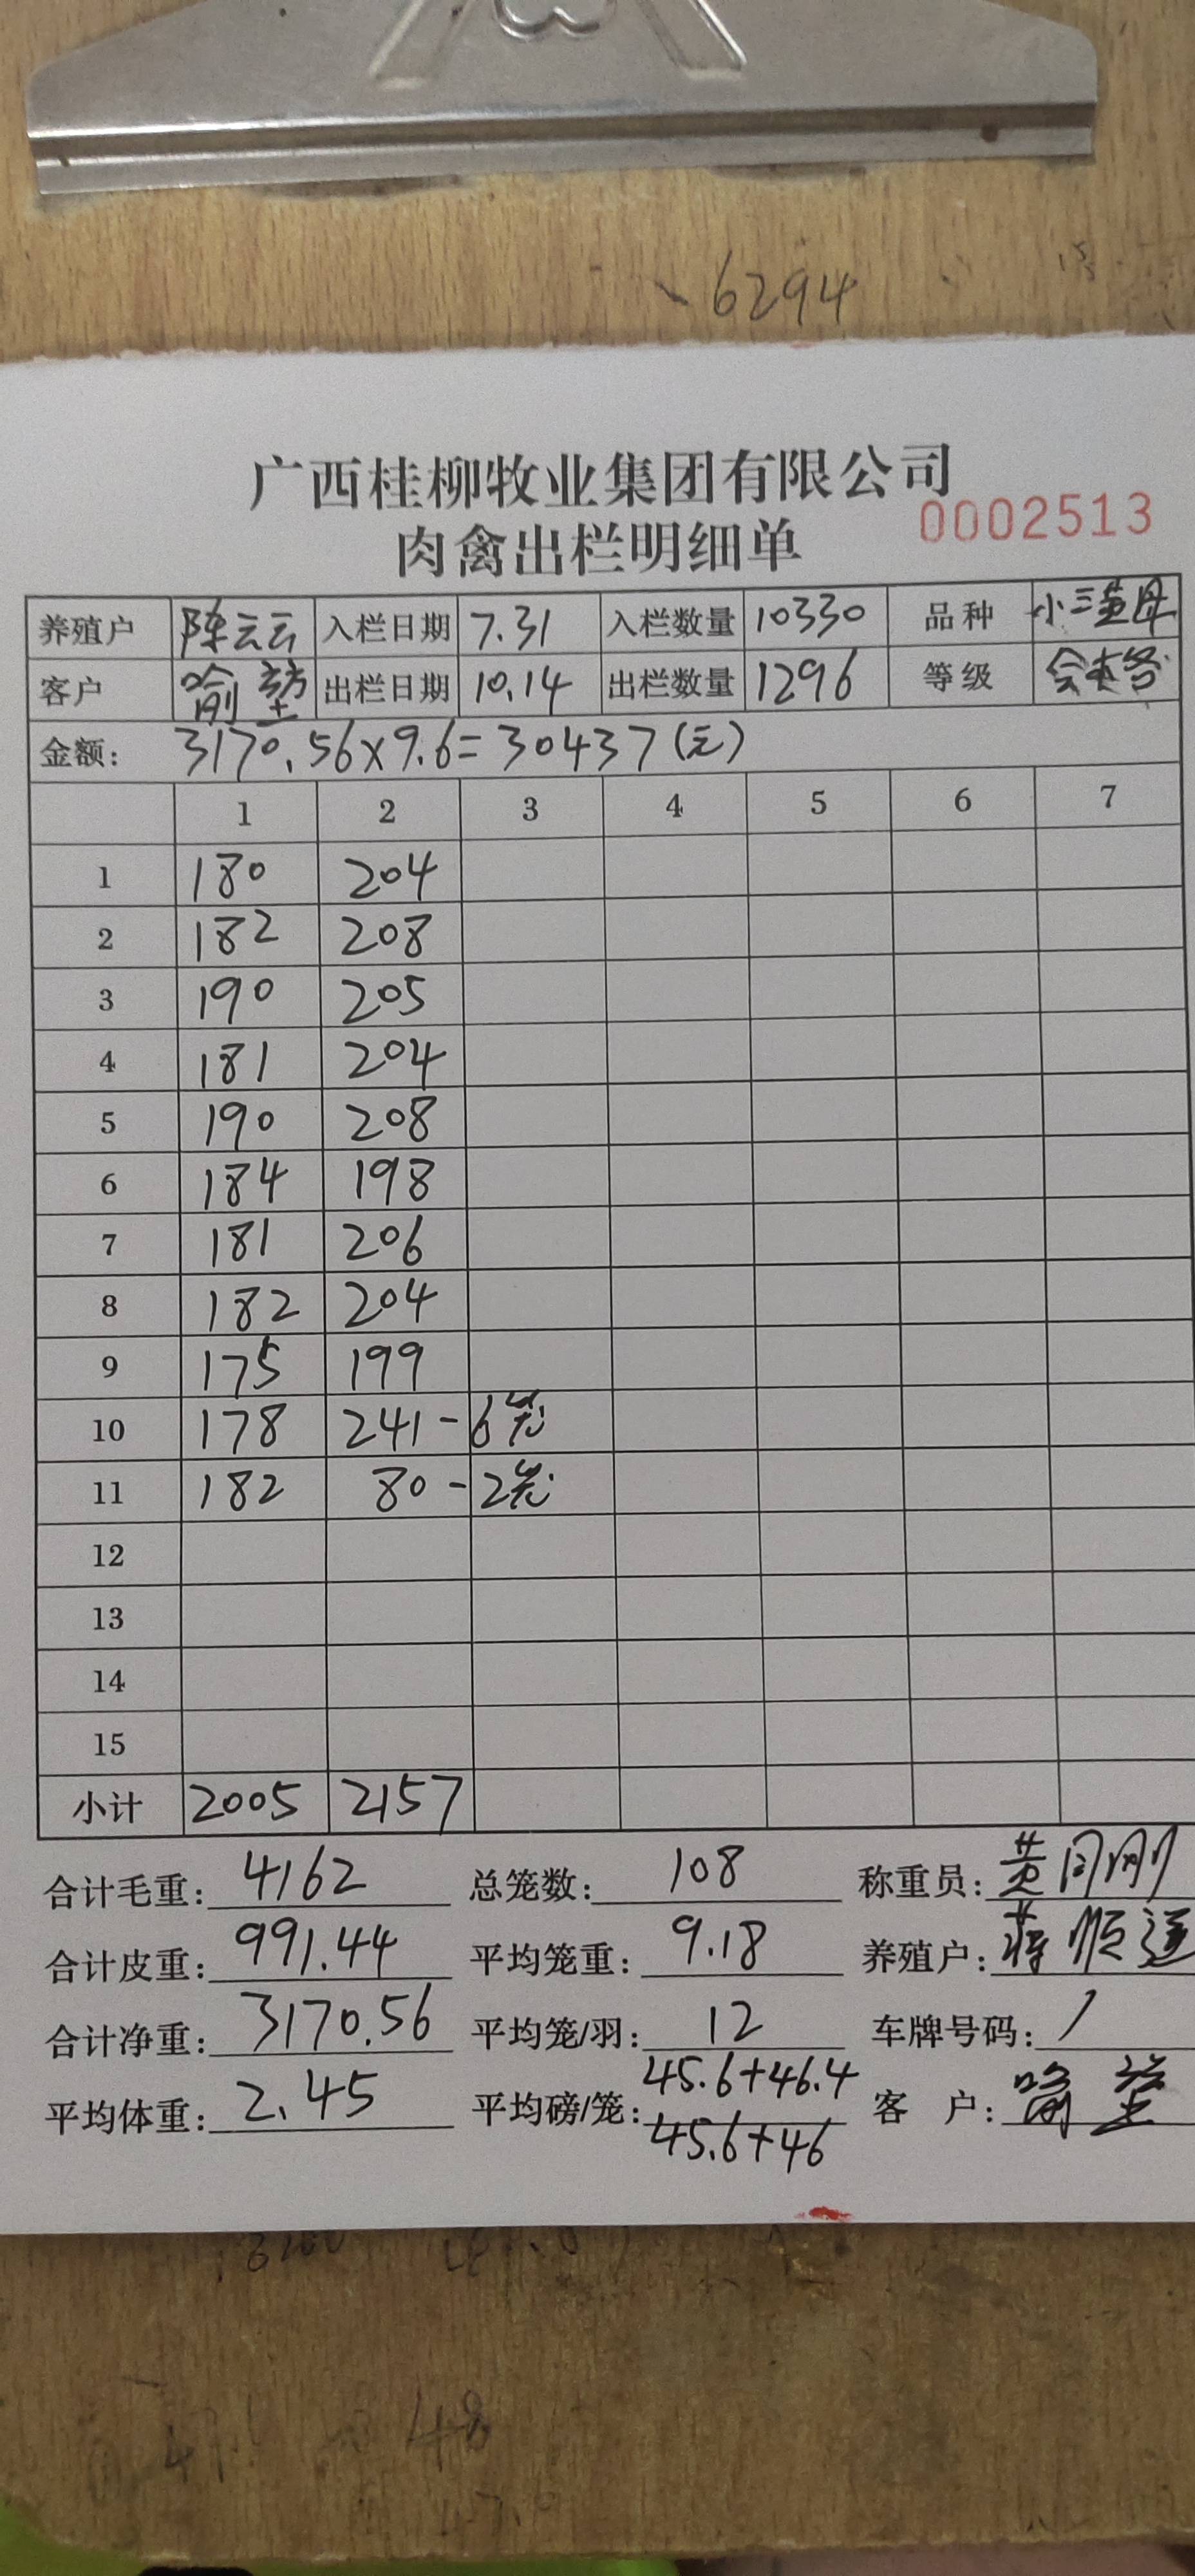 6294
广西桂柳牧业集团有限公司
0002513
肉禽出栏明细单
养殖户 陈云云 入栏日期 7.31 入栏数量 10330 品种 小三黄母
客户 喻 出栏日期 10.14 出栏数量 1296 等级
金额: 3170.56×9.6=30437(元)
1 2 3 4 5 6 7
1 180 204
2 182 208
3 190 205
4 181 204
5 190 208
6 184 198
7 181 206
8 182 204
9 175 199
10 178 241-6笼
11 182 80-2笼
12
13
14
15
小计 2005 2157
合计毛重: 4162 总笼数: 108 称重员: 黄
合计皮重: 991.44 平均笼重: 9.18 养殖户: 蒋顺
合计净重: 3170.56 平均笼/羽: 12 车牌号码: /
平均体重: 2.45 平均磅/笼: 45.6+46.4 客 户: 喻
45.6+46
48